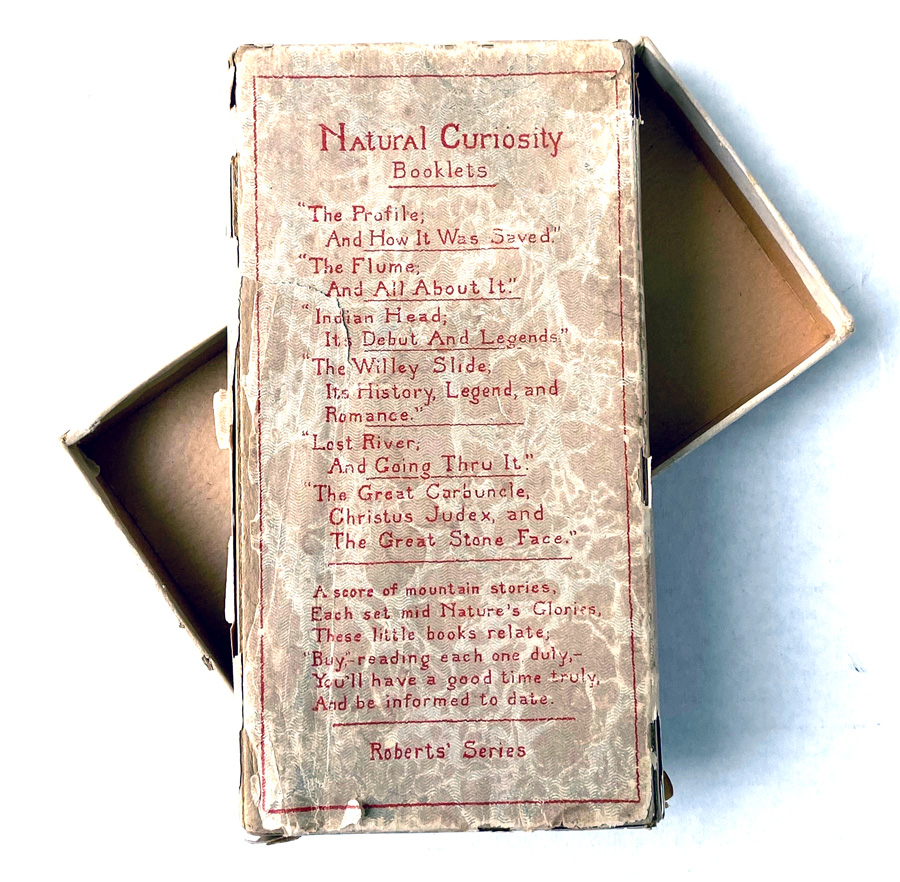 Natural Curiosity
Booklets
"The Profile;
And How It Was Saved."
"The Flume;
And All About It."
"Indian Head;
Its Debut And Legends"
"The Willey Slide;
Its History, Legend, and
Romance."
"Lost River;
And Going Thru It."
"The Great Carbuncle,
Christus Judex, and
The Great Stone Face."
A score of mountain stories,
Each set mid Nature's Glories,
These little books relate;
"Buy,"-reading each one duly,-
You'll have a good time truly,
And be informed to date.
Roberts' Series